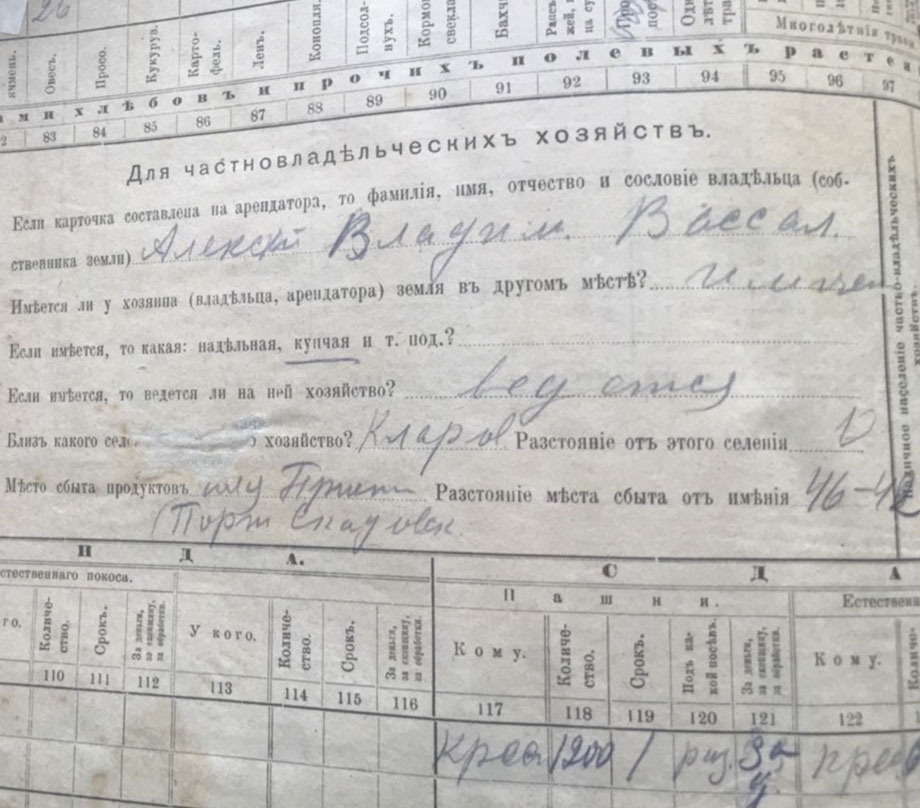 26
ячмень. Овесъ. Просо. Кукуруза. Карто-фель. Ленъ. Конопля. Подсол-нухъ. Кормо свекла Бахч
Многолѣтнія трав
ми хлѣбовъ и прочихъ полевыхъ растен
2 83 84 85 86 87 88 89 90 91 92 93 94 95 96 97
Для частновладѣльческихъ хозяйствъ.
Если карточка составлена на арендатора, то фамилія, имя, отчество и сословіе владѣльца (соб-
ственника земли) Алексѣй Владим. Вассал.
Имѣется ли у хозяина (владѣльца, арендатора) земля въ другомъ мѣстѣ?
Если имѣется, то какая: надѣльная, купчая и т. под.?
Если имѣется, то ведется ли на ней хозяйство? ведется
Близъ какого селе о хозяйство? Кларов Разстояніе отъ этого селенія
Мѣсто сбыта продуктовъ Разстояніе мѣста сбыта отъ имѣнія 46-
(Порт Скадовск.
Наличное населеніе частно-владѣльческихъ хозяйствъ.
Н Д А. С Д А
стественнаго покоса. Пашни. Естественн
го. Количе-ство. Срокъ. За деньги, за скопщину, за обработки. У кого. Количе-ство. Срокъ. За деньги, за скопщину, за обработки. Кому. Количе-ство. Срокъ. Подъ ка-кой посѣвъ. За деньги, за скопщину, за обработки. Кому. Количе
110 111 112 113 114 115 116 117 118 119 120 121 122
Крес 1200 1 раз. За крес